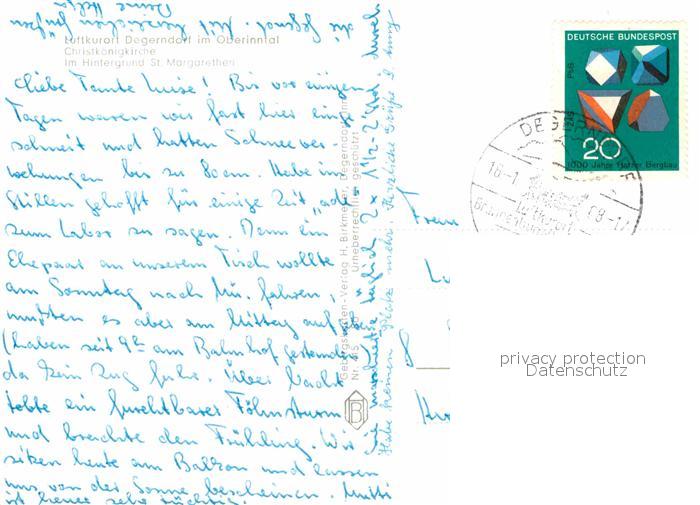 Luftkurort Degerndorf im Oberinntal
Christkönigkirche
Im Hintergrund St. Margarethen
Liebe Tante Luise! Bis vor einigen
Tagen waren wir fast hier einge-
schneit und hatten Schneever-
wehungen bis zu 80cm. Habe im
Stillen gehofft für einige Zeit „ade"
zum Labor zu sagen. Denn ein
Ehepaar an unserem Tisch wollte
am Sonntag nach Mü. fahren,
mußten es aber am Mittag auf
(haben seit 9h am Bahnhof gestanden)
da kein Zug fuhr. Über Nacht
tobte ein furchtbarer Föhnsturm
und brachte den Frühling. Wir
sitzen heute am Balkon und lassen
uns von der Sonne bescheinen. Mutti
ist heuer sehr tüchtig
täglich 2 x 1 1/2-2 Std. durch
die Gegend. Mit herzlichen Grüßen
Deine
Habe keinen Platz mehr. Herzliche Grüße
Gebirgskarten-Verlag H. Birkmeier, Degerndorf/Inn
Urheberrechtlich geschützt
Nr. 415
B
DEUTSCHE BUNDESPOST
20
1000 Jahre Harzer Bergbau
DEGERN
16-1
68-17
Luftkurort
privacy protection
Datenschutz